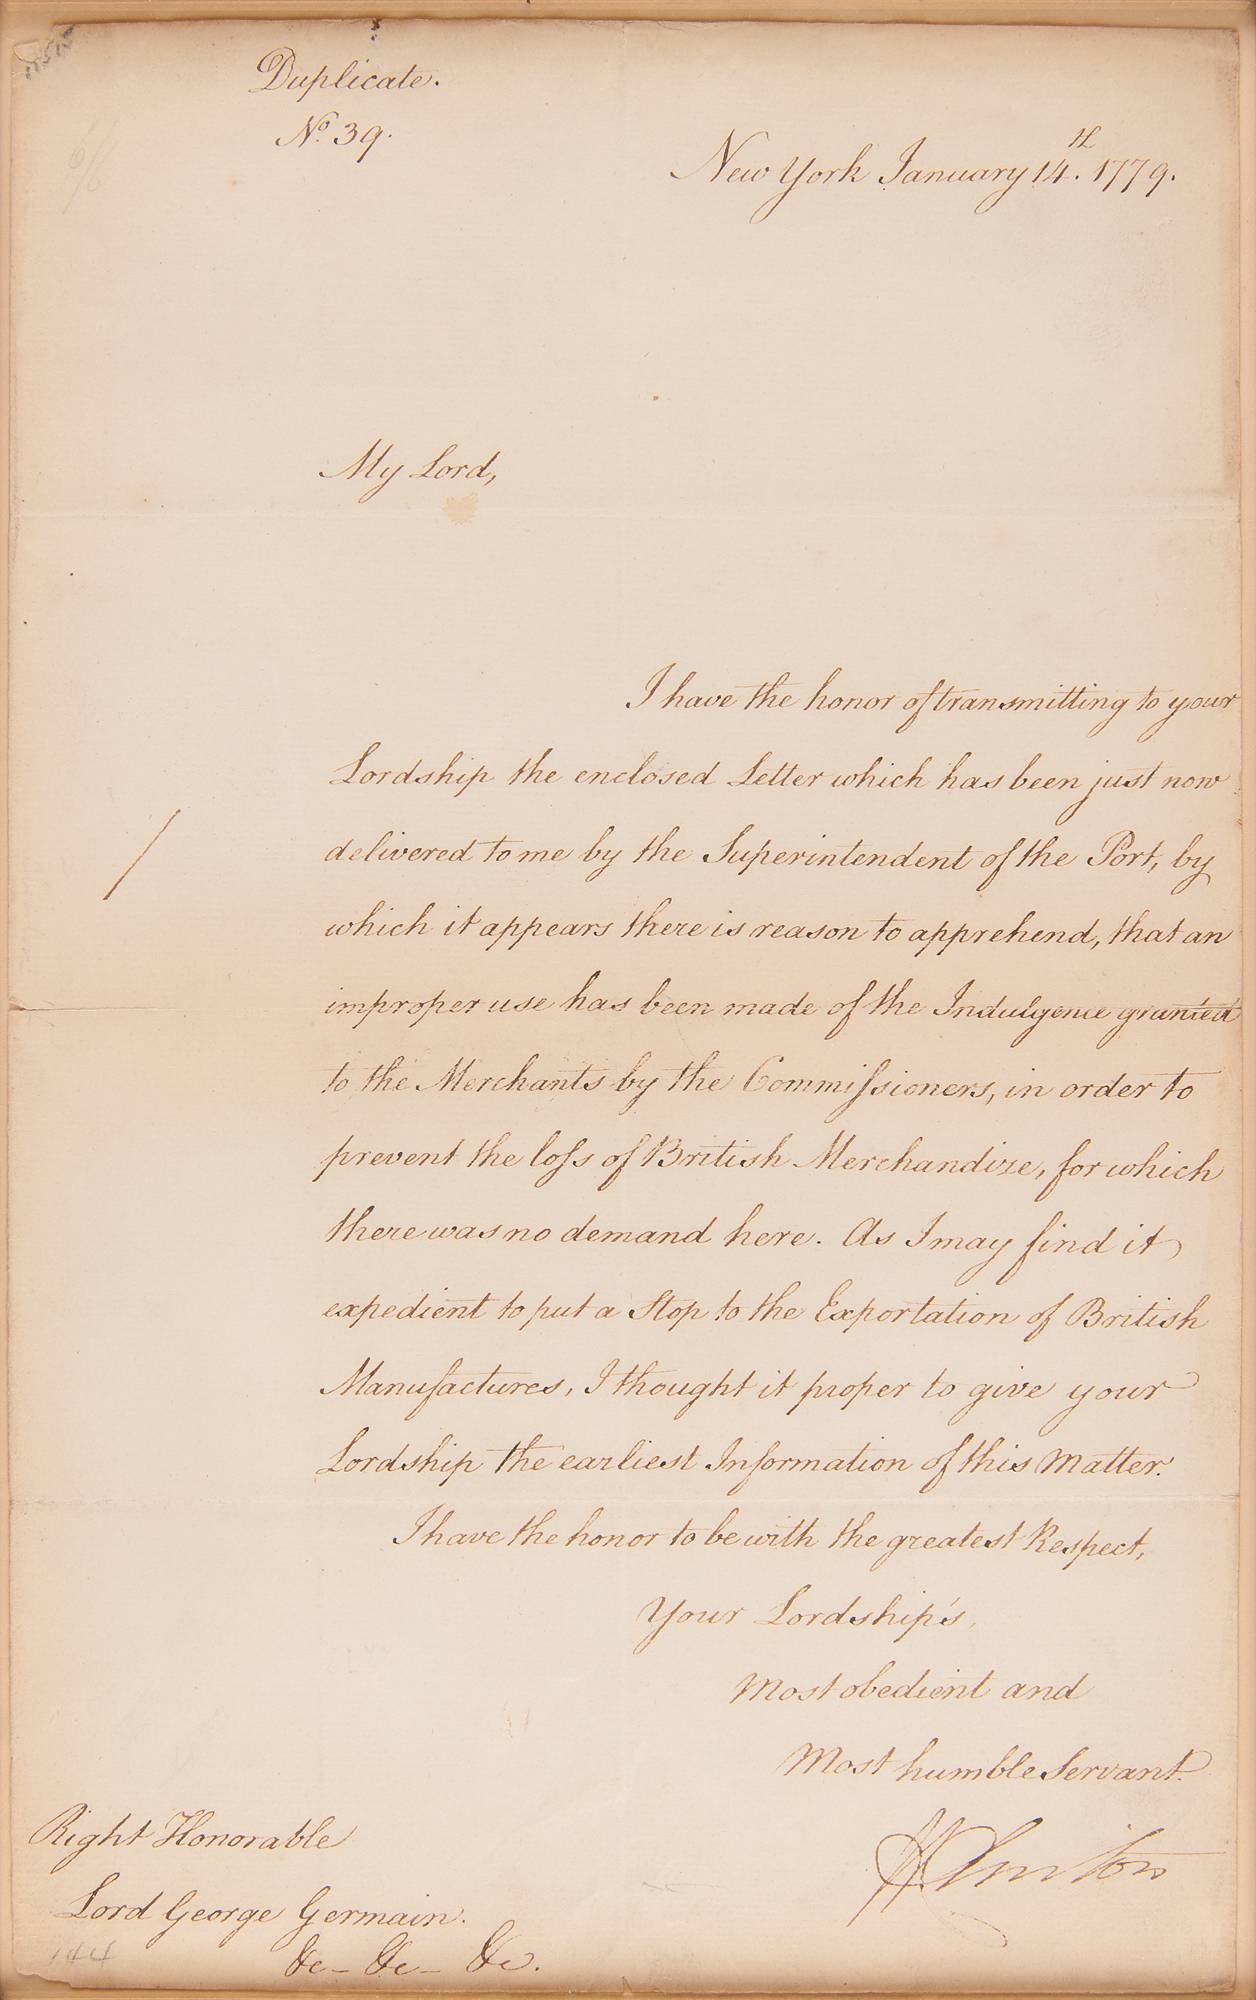 Duplicate.
No. 39.
New York January 14th. 1779.
My Lord,
I have the honor of transmitting to your
Lordship the enclosed Letter which has been just now
delivered to me by the Superintendent of the Port, by
which it appears there is reason to apprehend, that an
improper use has been made of the Indulgence granted
to the Merchants by the Commiſsioners, in order to
prevent the loſs of British Merchandize, for which
there was no demand here. As I may find it
expedient to put a Stop to the Exportation of British
Manufactures, I thought it proper to give your
Lordship the earliest Information of this Matter.
I have the honor to be with the greatest Respect,
Your Lordship's
Most obedient and
Most humble Servant.
H Clinton
Right Honorable
Lord George Germain.
&c - &c - &c.
144